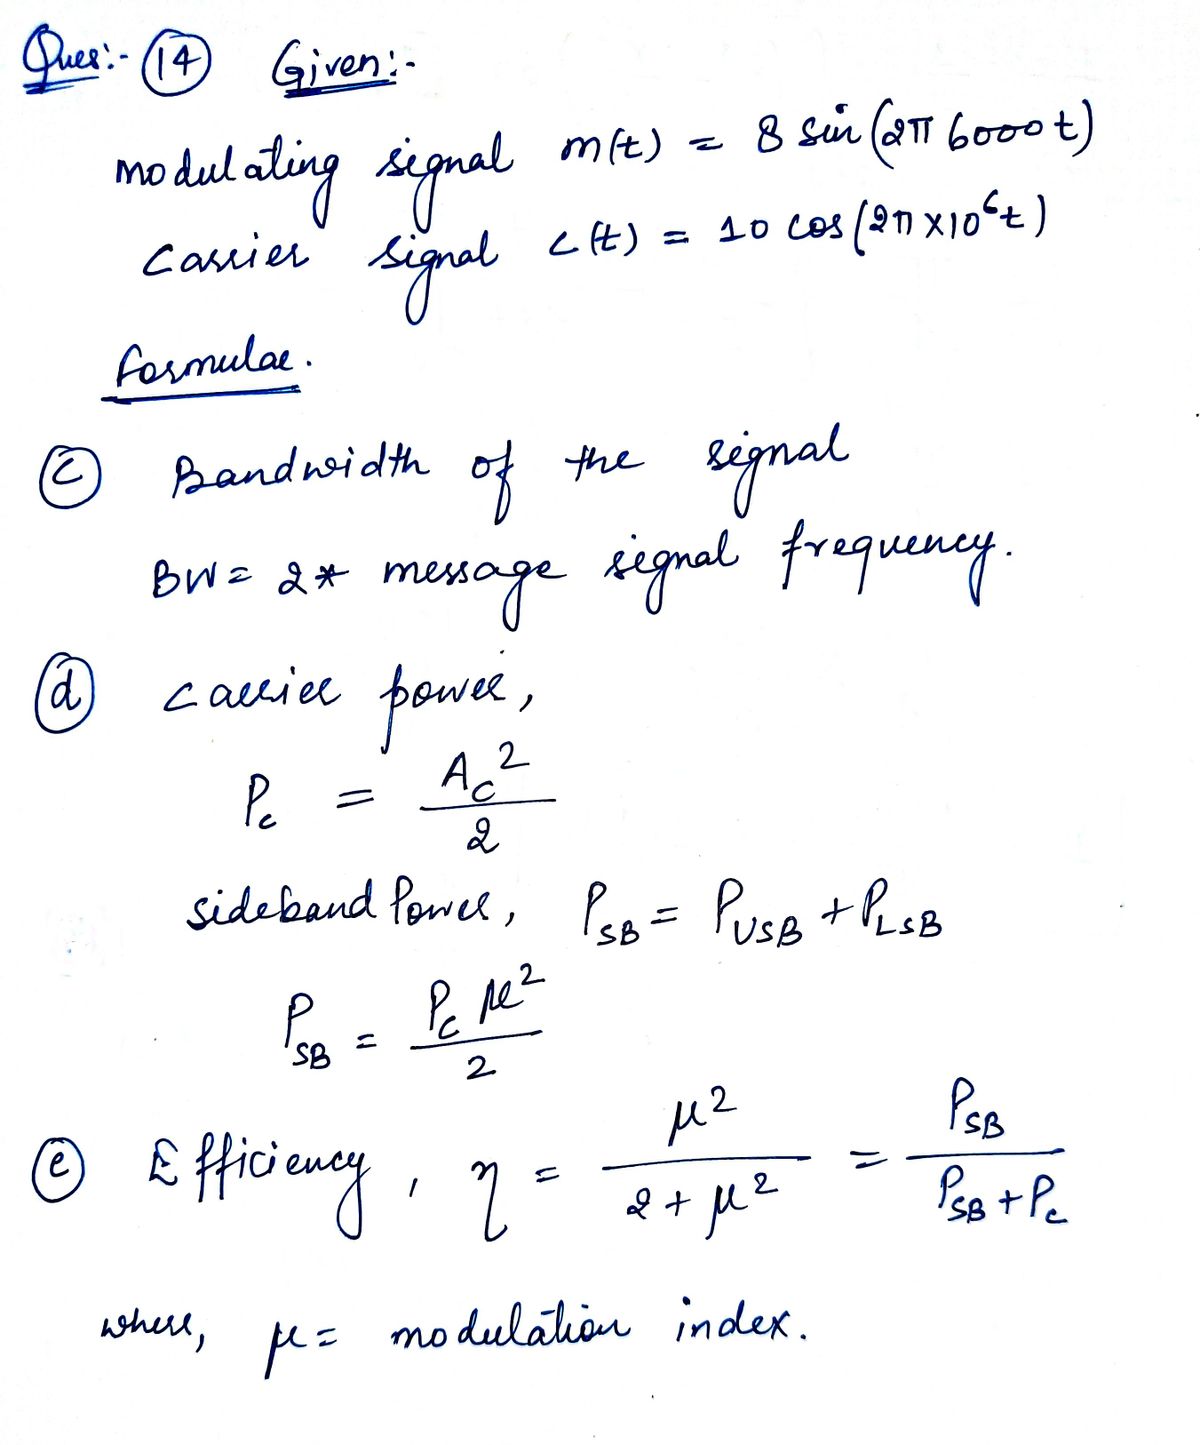 Ques:- (14) Given:-
modulating signal m(t) = 8 sin(2π 6000t)
carrier signal c(t) = 10 cos(2π×10⁶t)
formulae.
(c) Bandwidth of the signal
BW = 2* message signal frequency.
(d) carrier power,
P_c = A_c² / 2
sideband Power, P_SB = P_USB + P_LSB
P_SB = P_c μ² / 2
(e) Efficiency, η = μ² / (2 + μ²) = P_SB / (P_SB + P_c)
where, μ = modulation index.